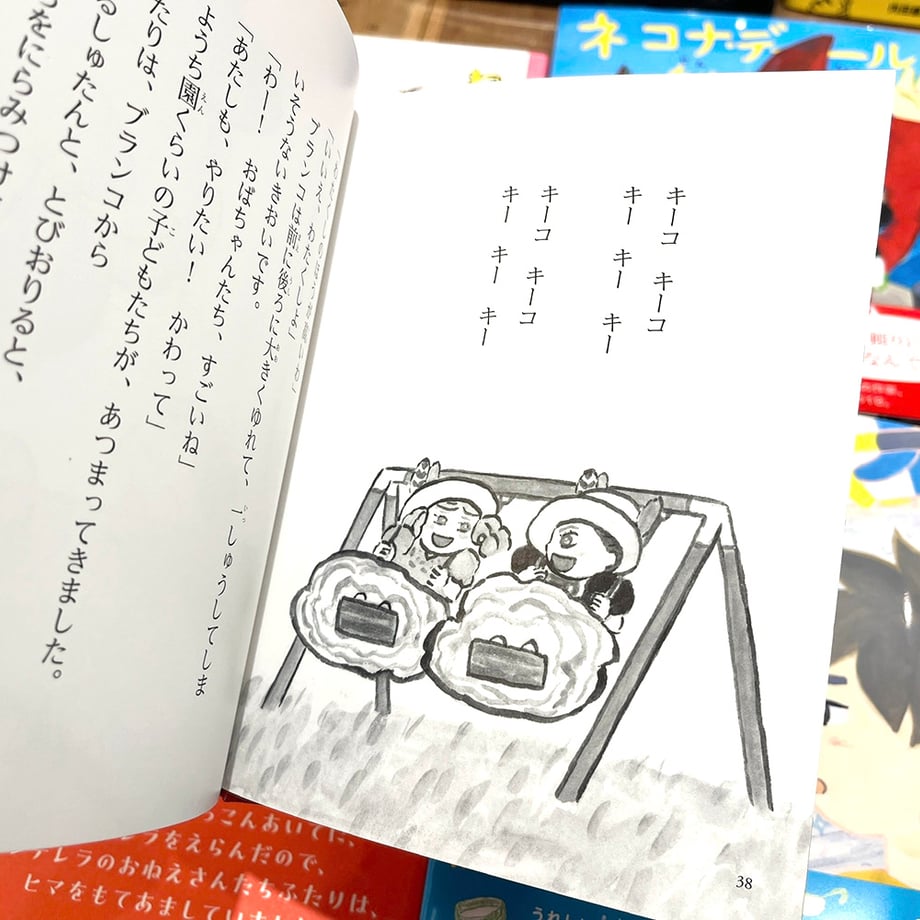 キーコ　キーコ
キー　キー　キー
キーコ　キーコ
キー　キー　キー
38
「いいえ、わたくしよ」
ブランコは前に後ろに大きくゆれて、一しゅうしてしま
いそうないきおいです。
「わー！　おばちゃんたち、すごいね」
「あたしも、やりたい！　かわって」
ようち園くらいの子どもたちが、あつまってきました。
たりは、ブランコから
るしゅたんと、とびおりると、
をにらみつけ
ネコナデ
ール
こんあいてに、
をえらんだので、
デレラのおねえさんたちふたりは、
ヒマをもてあましていました